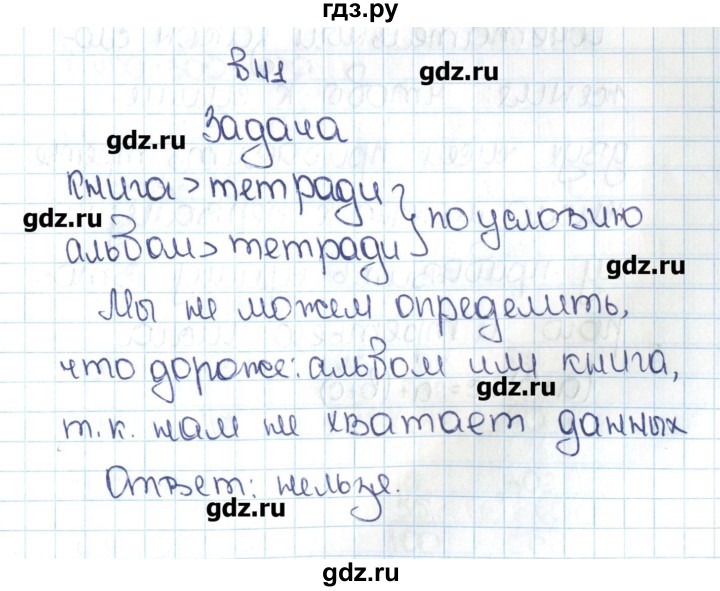 гдз.ру
в41
gdz.ru
Задача
gdz.ru
книга > тетради
альбом > тетради } по условию
gdz.ru
gdz.ru
Мы не можем определить,
что дороже: альбом или книга,
gdz.ru
т.к. нам не хватает данных
Ответ: нельзя.
gdz.ru
gdz.ru